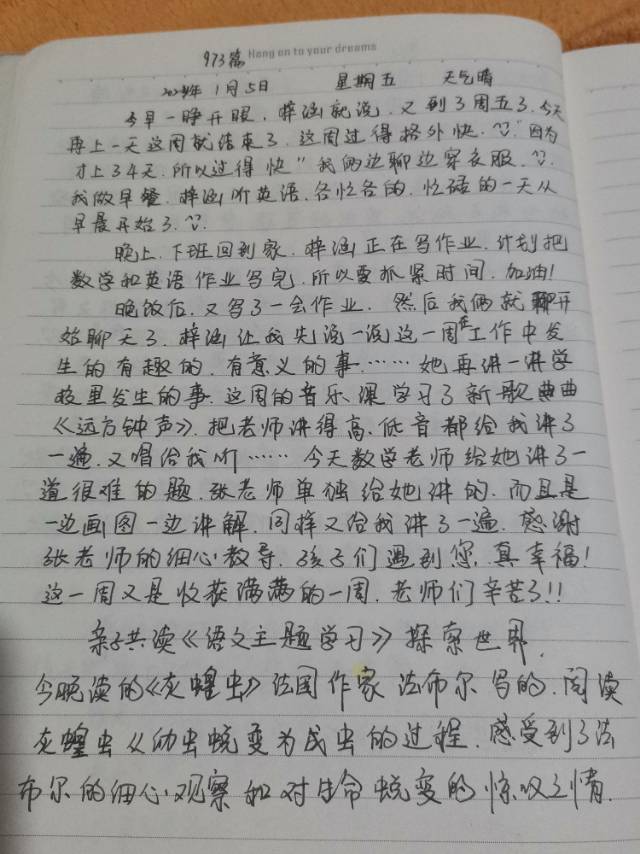 973篇 Hang on to your dreams
2024年1月5日 星期五 天气晴
今早一睁开眼,梓涵就说,又到了周五了,今天
再上一天这周就结束了,这周过得格外快。"因为
才上34天,所以过得快"我俩边聊边穿衣服。
我做早餐,梓涵听英语,各忙各的,忙碌的一天从
早晨开始了。
晚上,下班回到家,梓涵正在写作业,计划把
数学和英语作业写完,所以要抓紧时间,加油!
晚饭后,又写了一会作业,然后我俩就聊开
始聊天了,梓涵让我先说一说这一周在工作中发
生的有趣的,有意义的事……她再讲一讲学
校里发生的事,这周的音乐课学习了新歌曲曲
《远方钟声》,把老师讲得高、低音都给我讲了
一遍,又唱给我听……今天数学老师给她讲了一
道很难的题,张老师单独给她讲的,而且是
一边画图一边讲解,同样又给我讲了一遍,感谢
张老师的细心教导,孩子们遇到您,真幸福!
这一周又是收获满满的一周,老师们辛苦了!!
亲子共读《语文主题学习》探索世界,
今晚读的《灰蝗虫》法国作家法布尔写的,阅读
灰蝗虫从幼虫蜕变为成虫的过程,感受到了法
布尔的细心观察和对生命蜕变的惊叹之情.